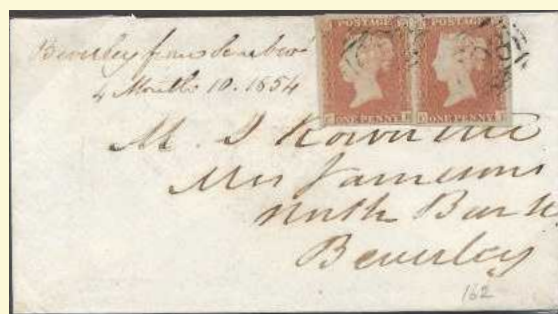 Beverley from
4 Month 10. 1854
POSTAGE POSTAGE
ONE PENNY ONE PENNY
M. J
Mrs Jamesons
North Bar
Beverley
162